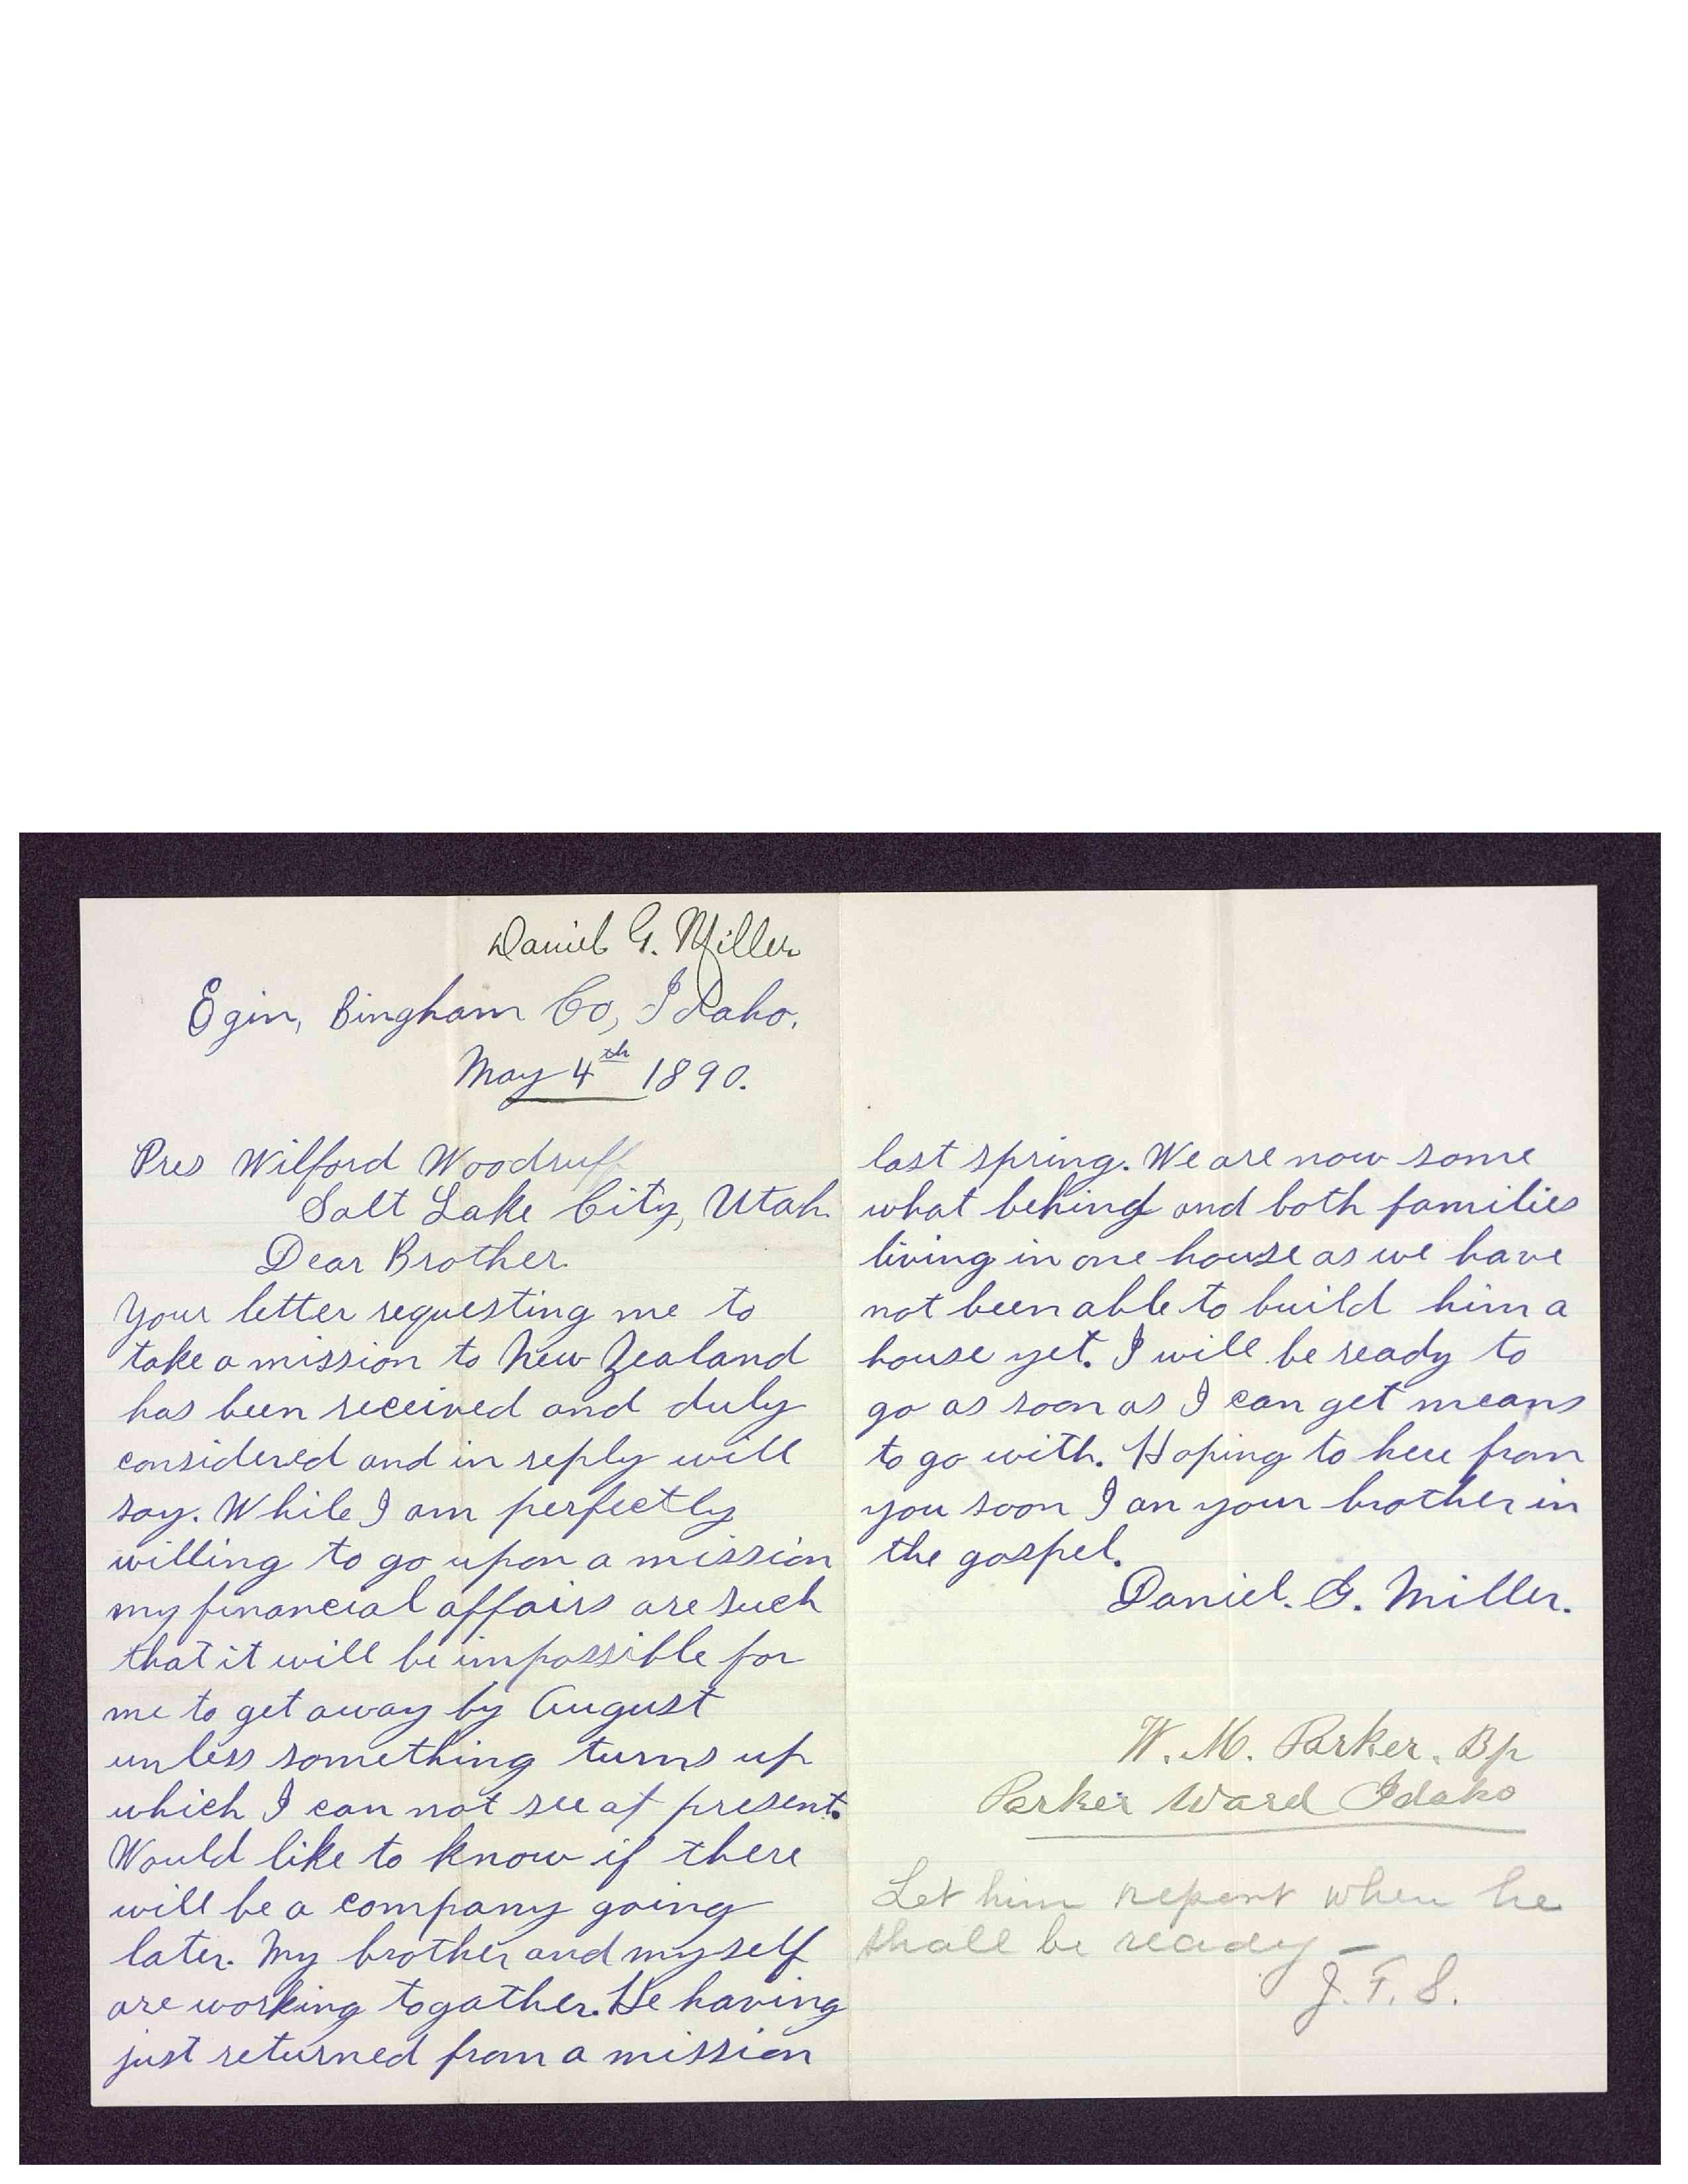 Daniel G. Miller
Egin, Bingham Co, Idaho.
May 4th 1890.
Pres Wilford Woodruff
Salt Lake City, Utah.
Dear Brother.
Your letter requesting me to
take a mission to New Zealand
has been received and duly
considered and in reply will
say. While I am perfectly
willing to go upon a mission
my financial affairs are such
that it will be impossible for
me to get away by August
unless something turns up
which I can not see at present.
Would like to know if there
will be a company going
later. My brother and myself
are working togather. He having
just returned from a mission
last spring. We are now some
what behing and both families
living in one house as we have
not been able to build him a
house yet. I will be ready to
go as soon as I can get means
to go with. Hoping to here from
you soon I an your brother in
the gospel.
Daniel. G. Miller.
W. M. Parker. Bp
Parker Ward Idaho
Let him report when he
shall be ready –
J. F. S.